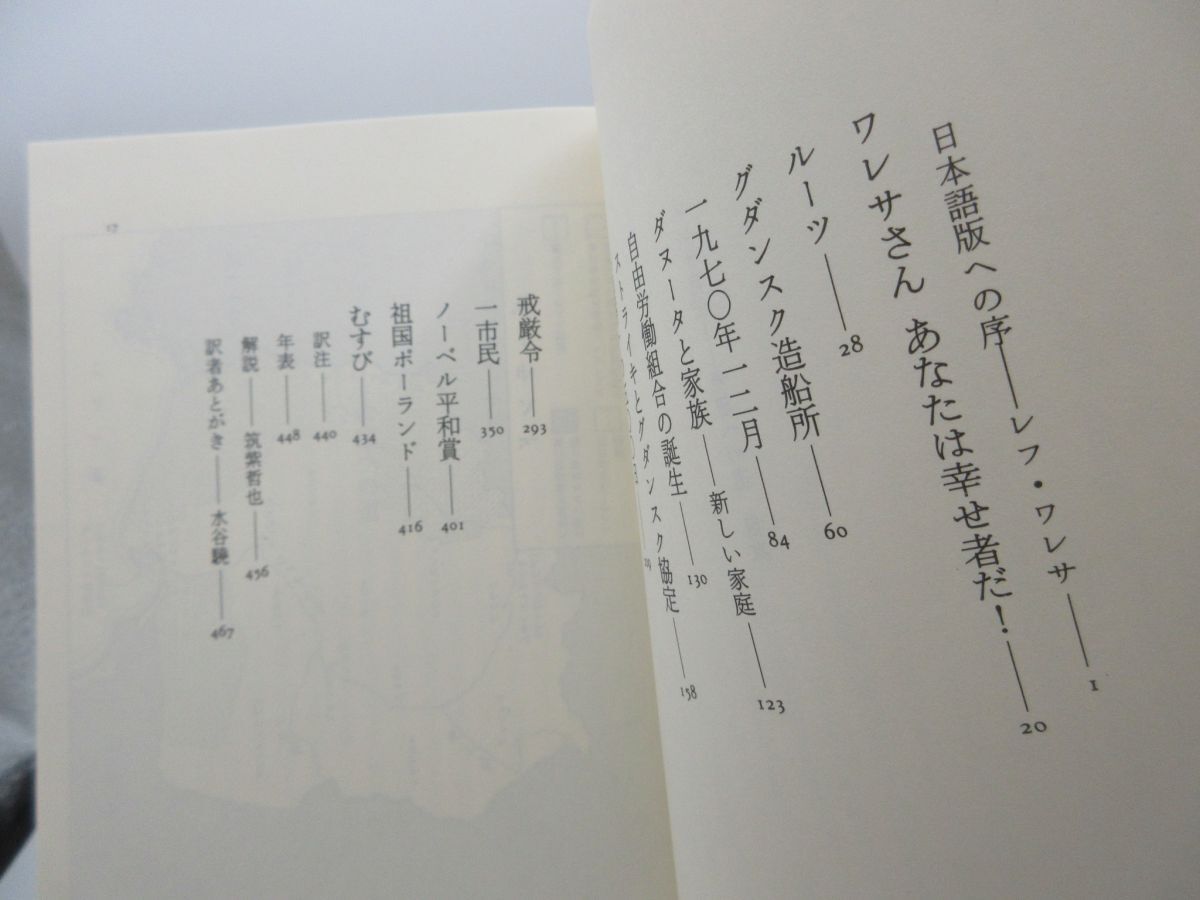 日本語版への序――レフ・ワレサ――1
ワレサさん あなたは幸せ者だ！――20
ルーツ――28
グダンスク造船所――60
一九七〇年一二月――84
ダヌータと家族――新しい家庭――123
自由労働組合の誕生――130
ストライキとグダンスク協定――158
戒厳令――293
一市民――350
ノーベル平和賞――401
祖国ポーランド――416
むすび――434
訳注――440
年表――448
解説――筑紫哲也――456
訳者あとがき――水谷驍――467
17